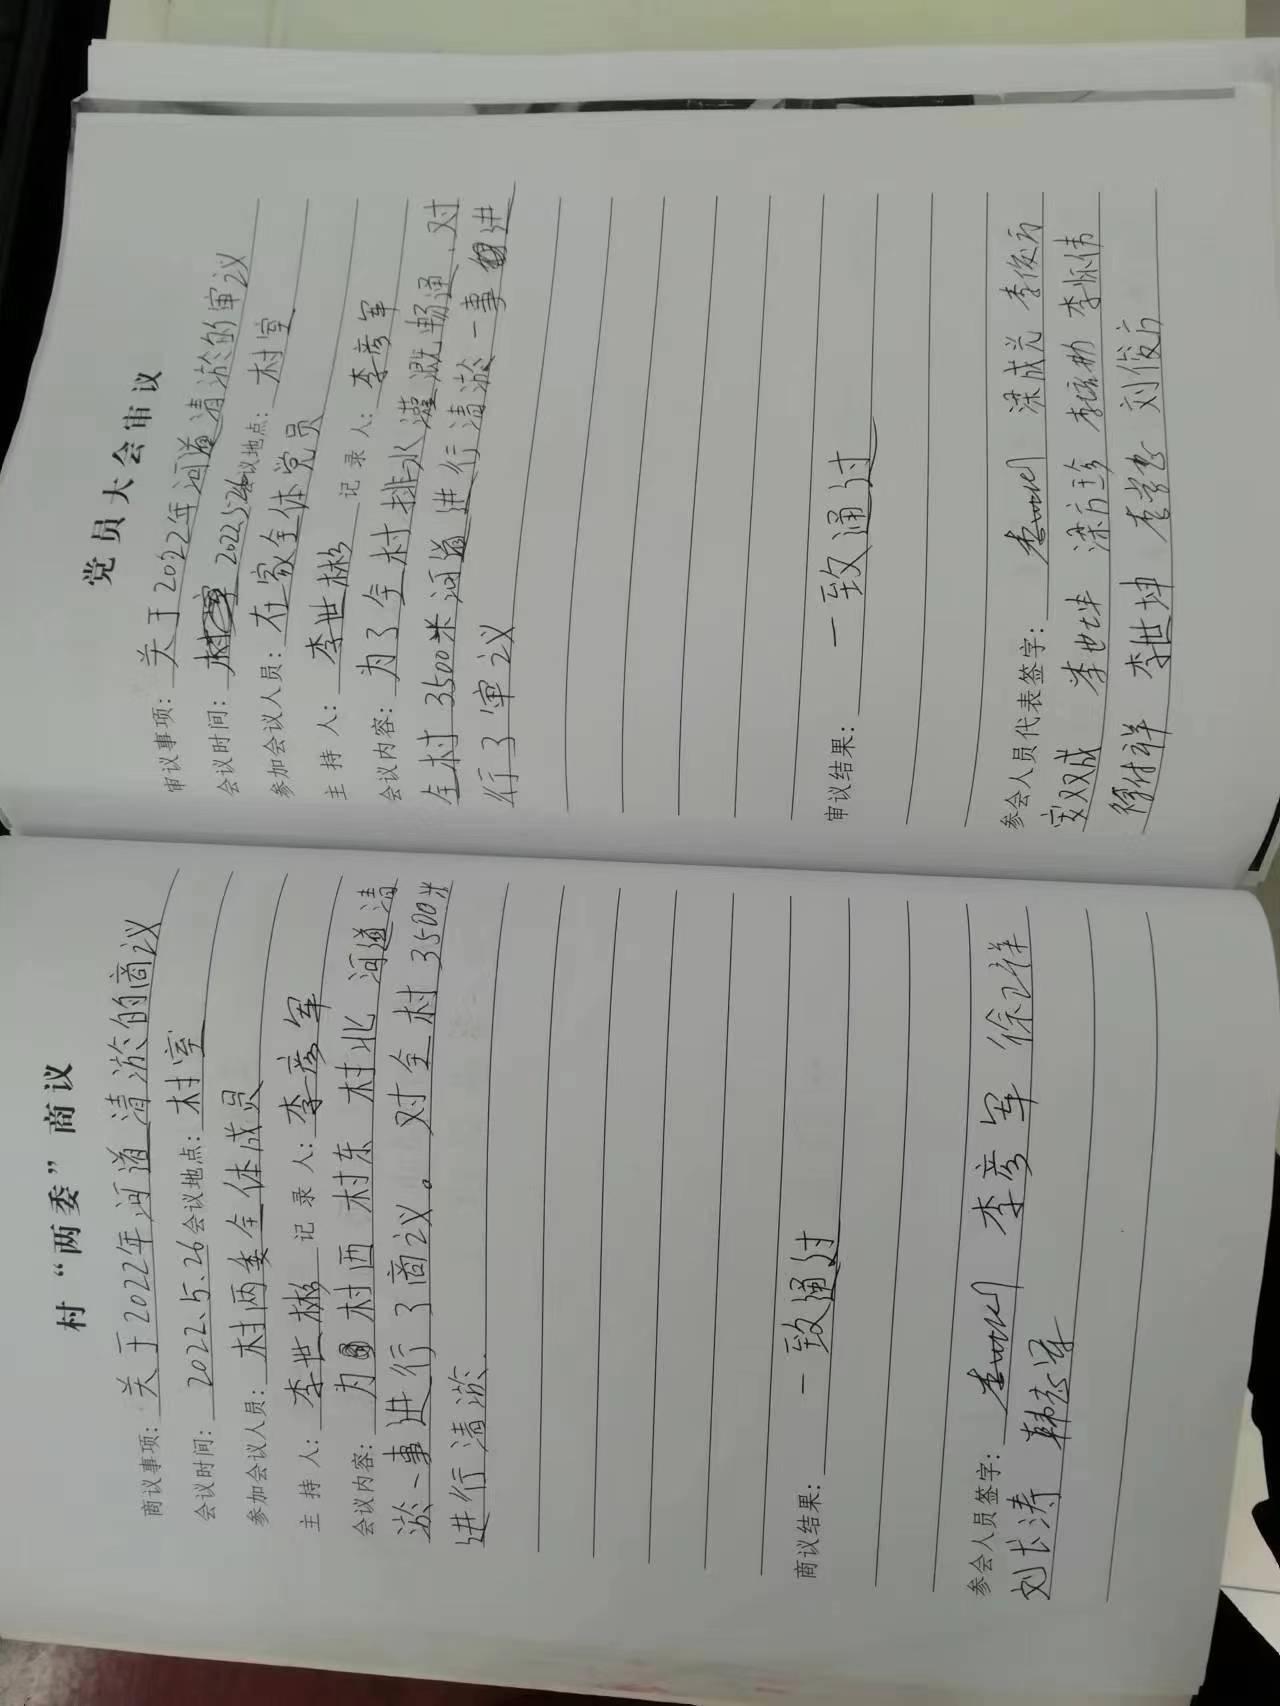 村“两委”商议
商议事项：关于2022年河道清淤的商议
会议时间：2022、5.26会议地点：村室
参加会议人员：村两委全体成员
主持人：李世彬 记录人：李彦军
会议内容：为村西 村东 村北 河道清
淤、事进行了商议。对全村3500米
进行清淤.
商议结果：一致通过
参会人员签字： 李彦军
刘长涛
党员大会审议
审议事项：关于2022年河道清淤的审议
会议时间：2022.5.26会议地点：村室
参加会议人员：在家全体党员
主持人：李世彬 记录人：李彦军
会议内容：为了全村排水灌溉畅通、对
全村3500米河道进行清淤一事进
行了审议
审议结果：一致通过
参会人员代表签字： 梁成光 李俊方
李世坤 李怀伟
李世坤 刘俊方